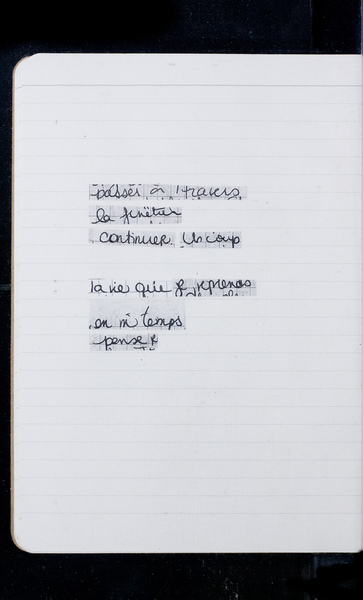 passer à travers
la fenêtre
continuer un coup
la vie que je reprends
en m temps
penser